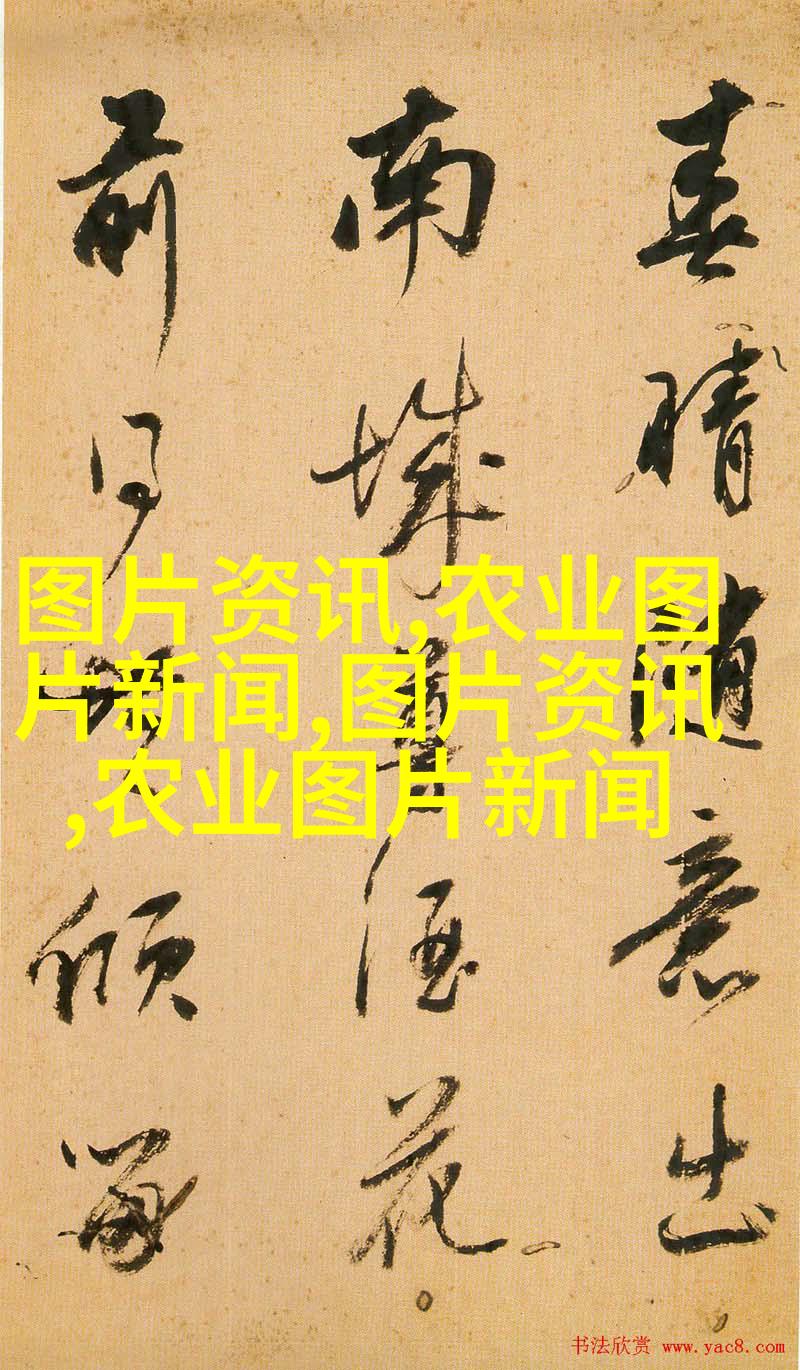 春晴隨意出
南城尊酒花
前同傾
图片资讯,农业图
片新闻,图片资讯
,农业图片新闻
书法欣赏 www.yac8.com